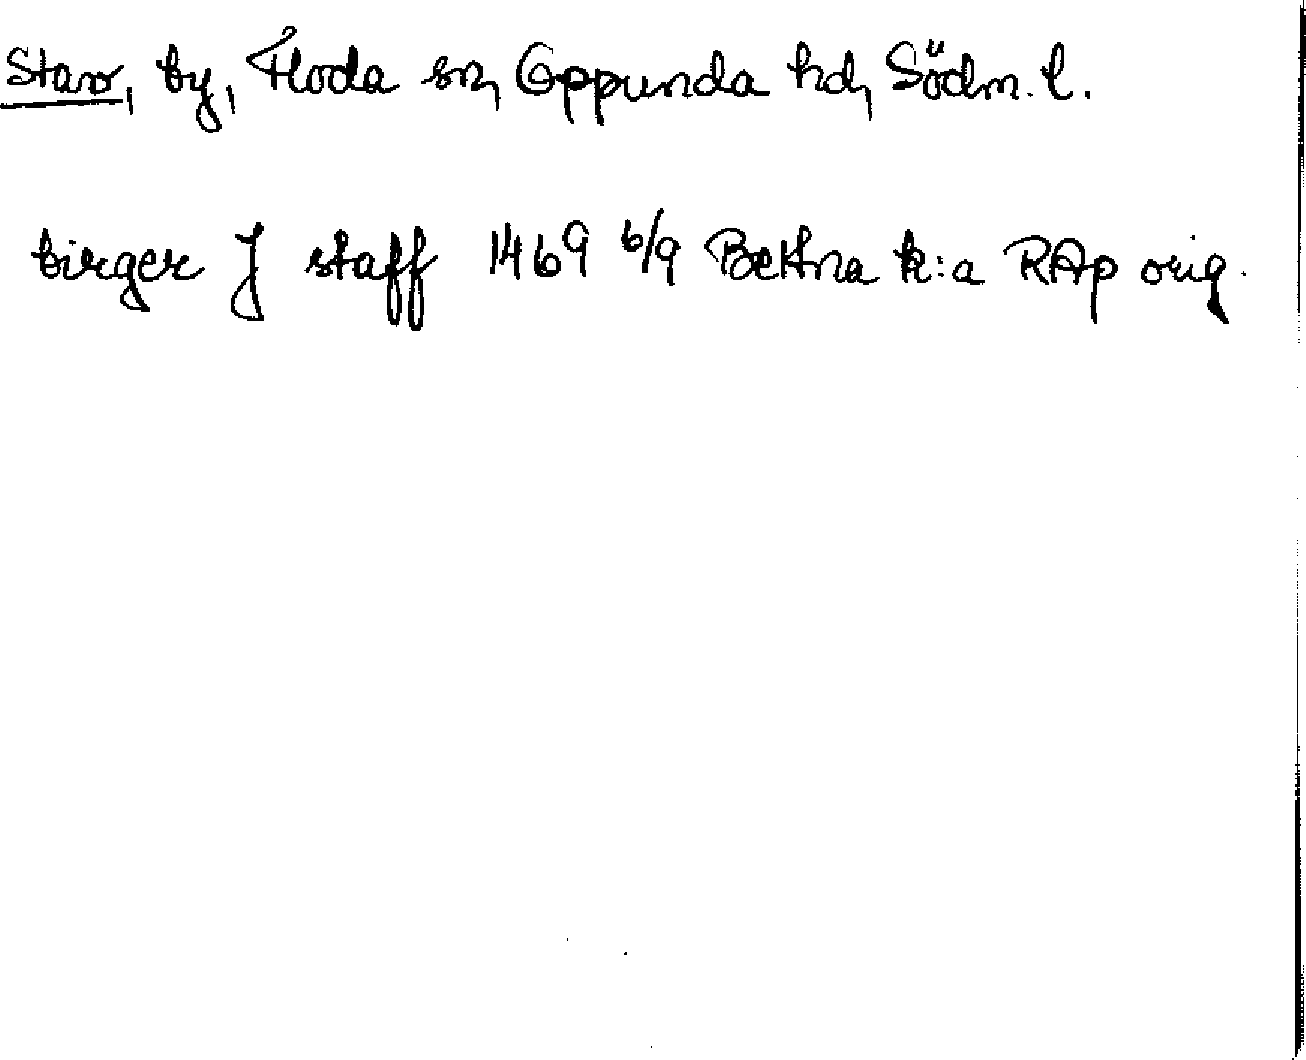 Stav, by, Floda sn, Oppunda hd, Södm. l.
birger J staff 1469 6/9 Bettna k:a RAp orig.